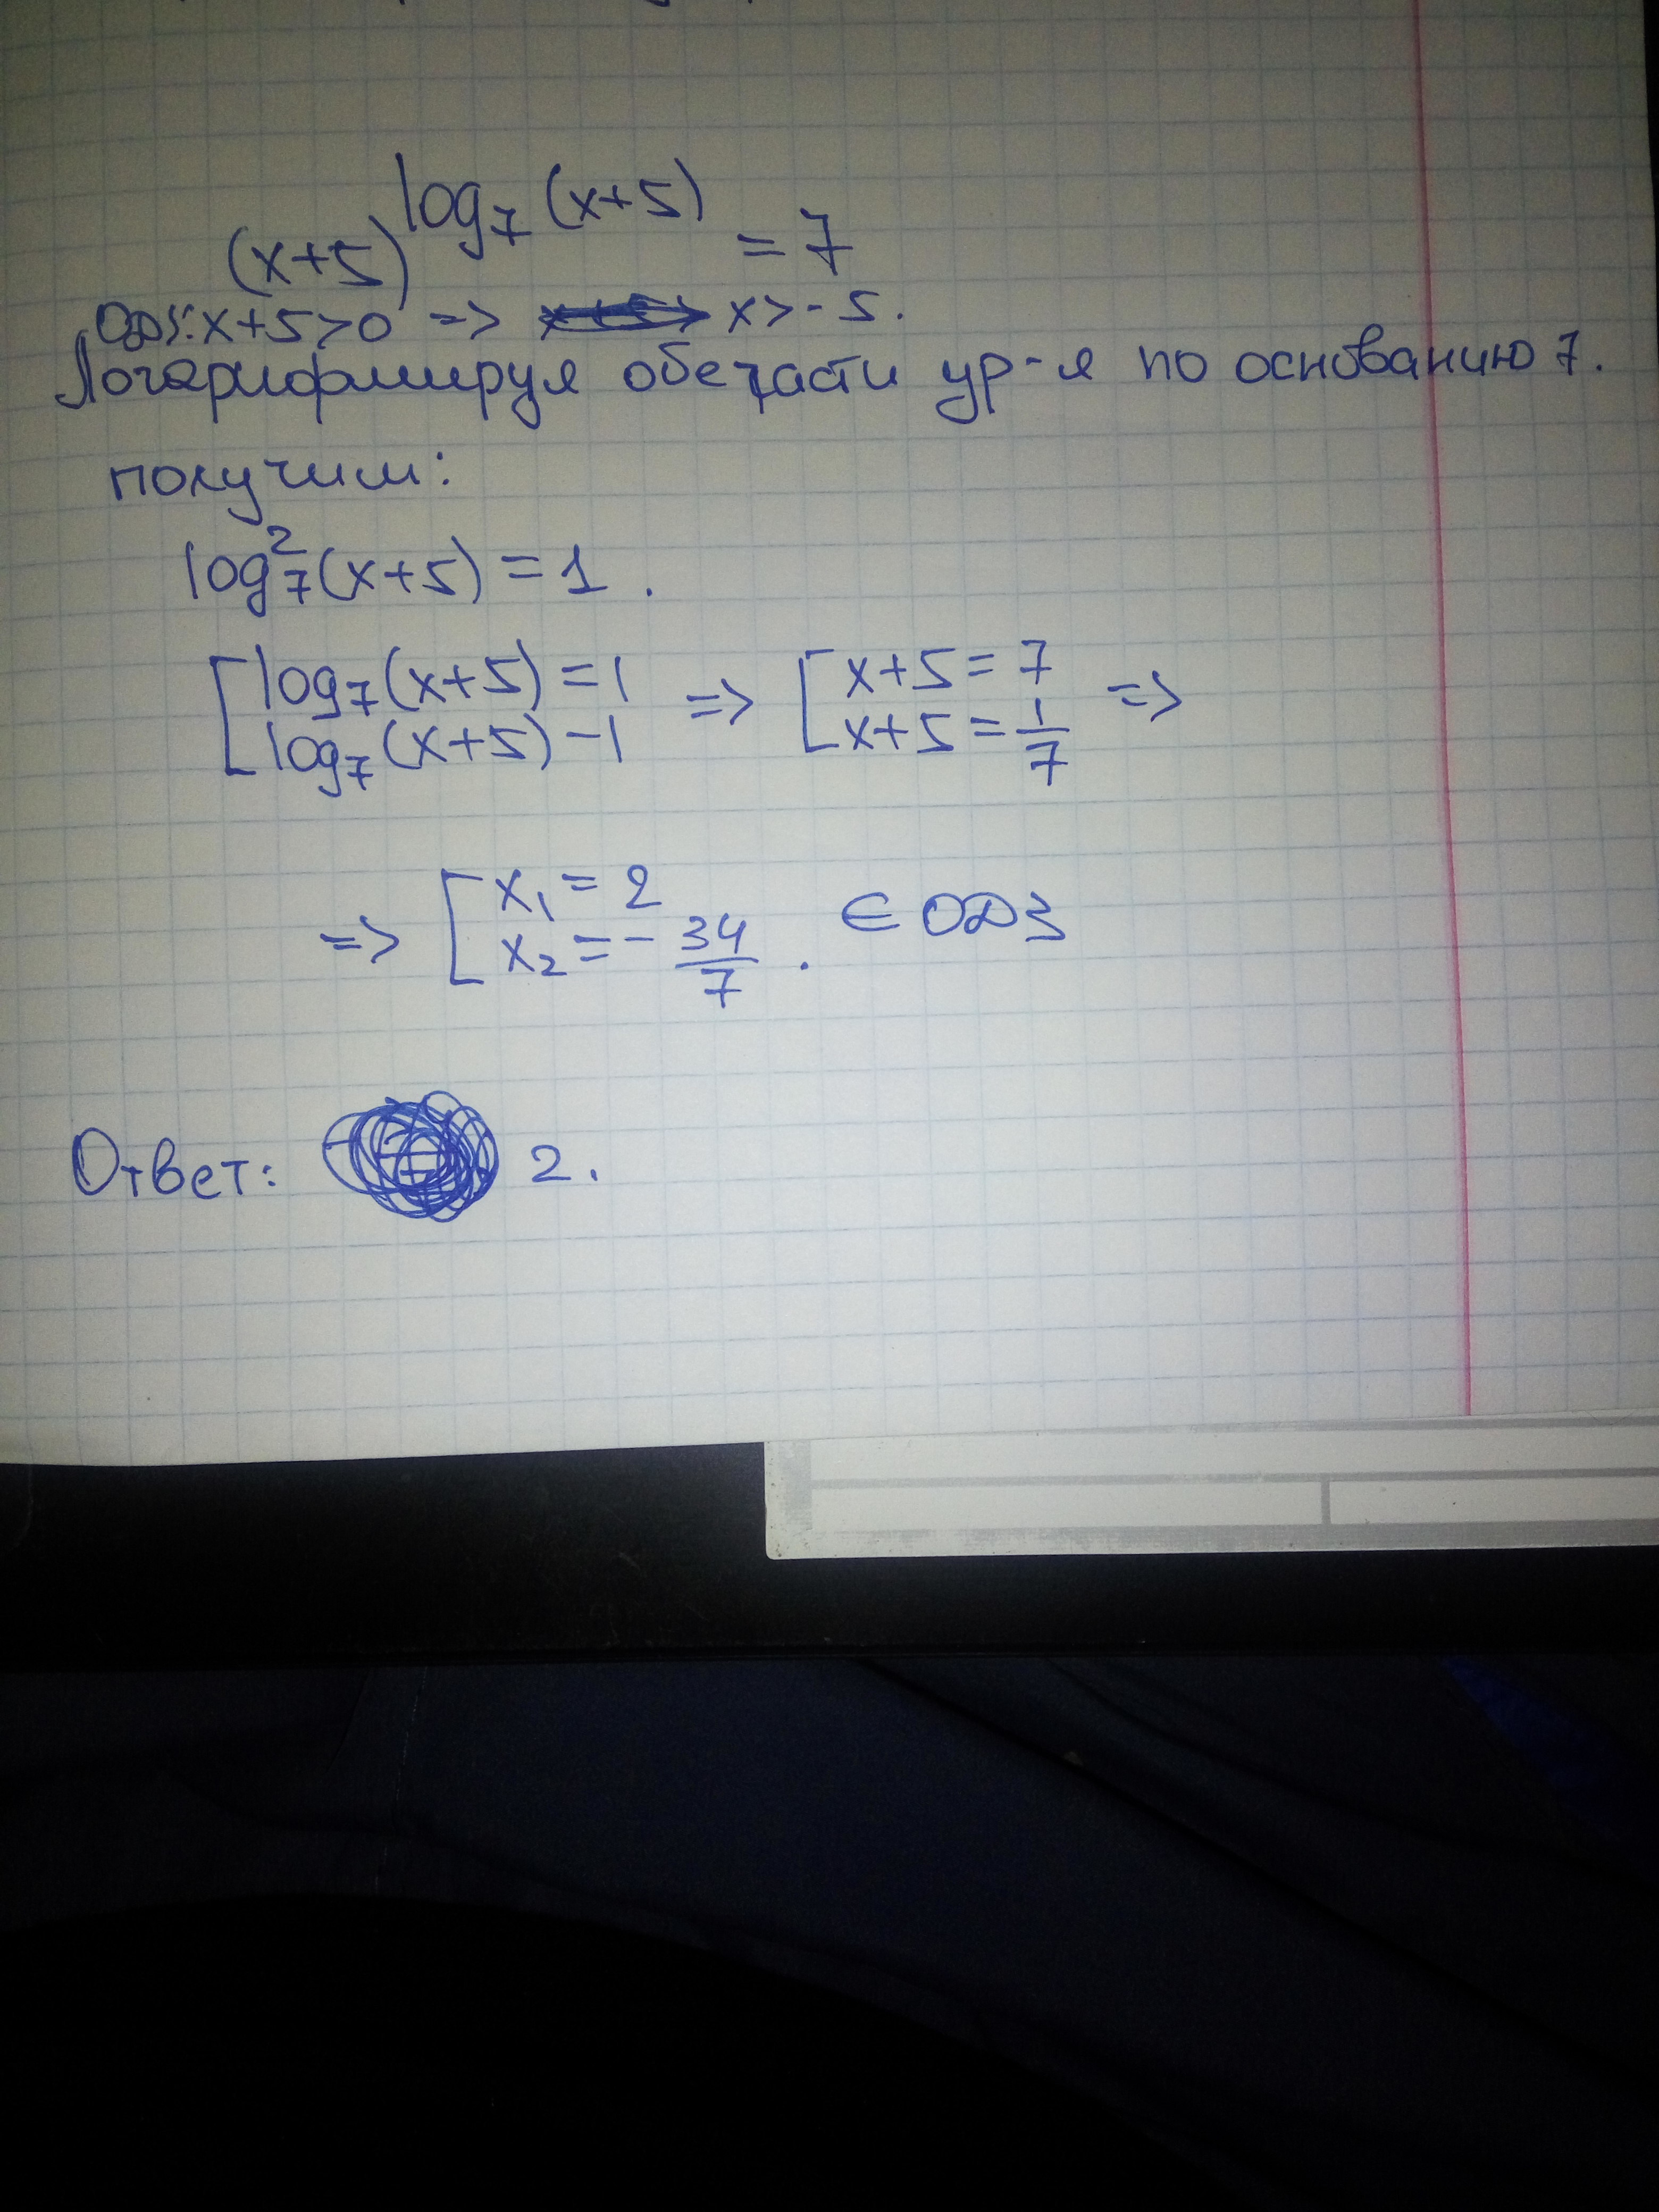 (x+5)^log₇(x+5) = 7
ОДЗ: x+5>0 => x>-5.
Логарифмируя обе части ур-я по основанию 7.
получим:
log₇²(x+5) = 1.
[log₇(x+5) = 1 => [x+5 = 7 =>
log₇(x+5) - 1 x+5 = 1/7
=> [x₁ = 2
x₂ = - 34/7 . ∈ ОДЗ
Ответ: 2.